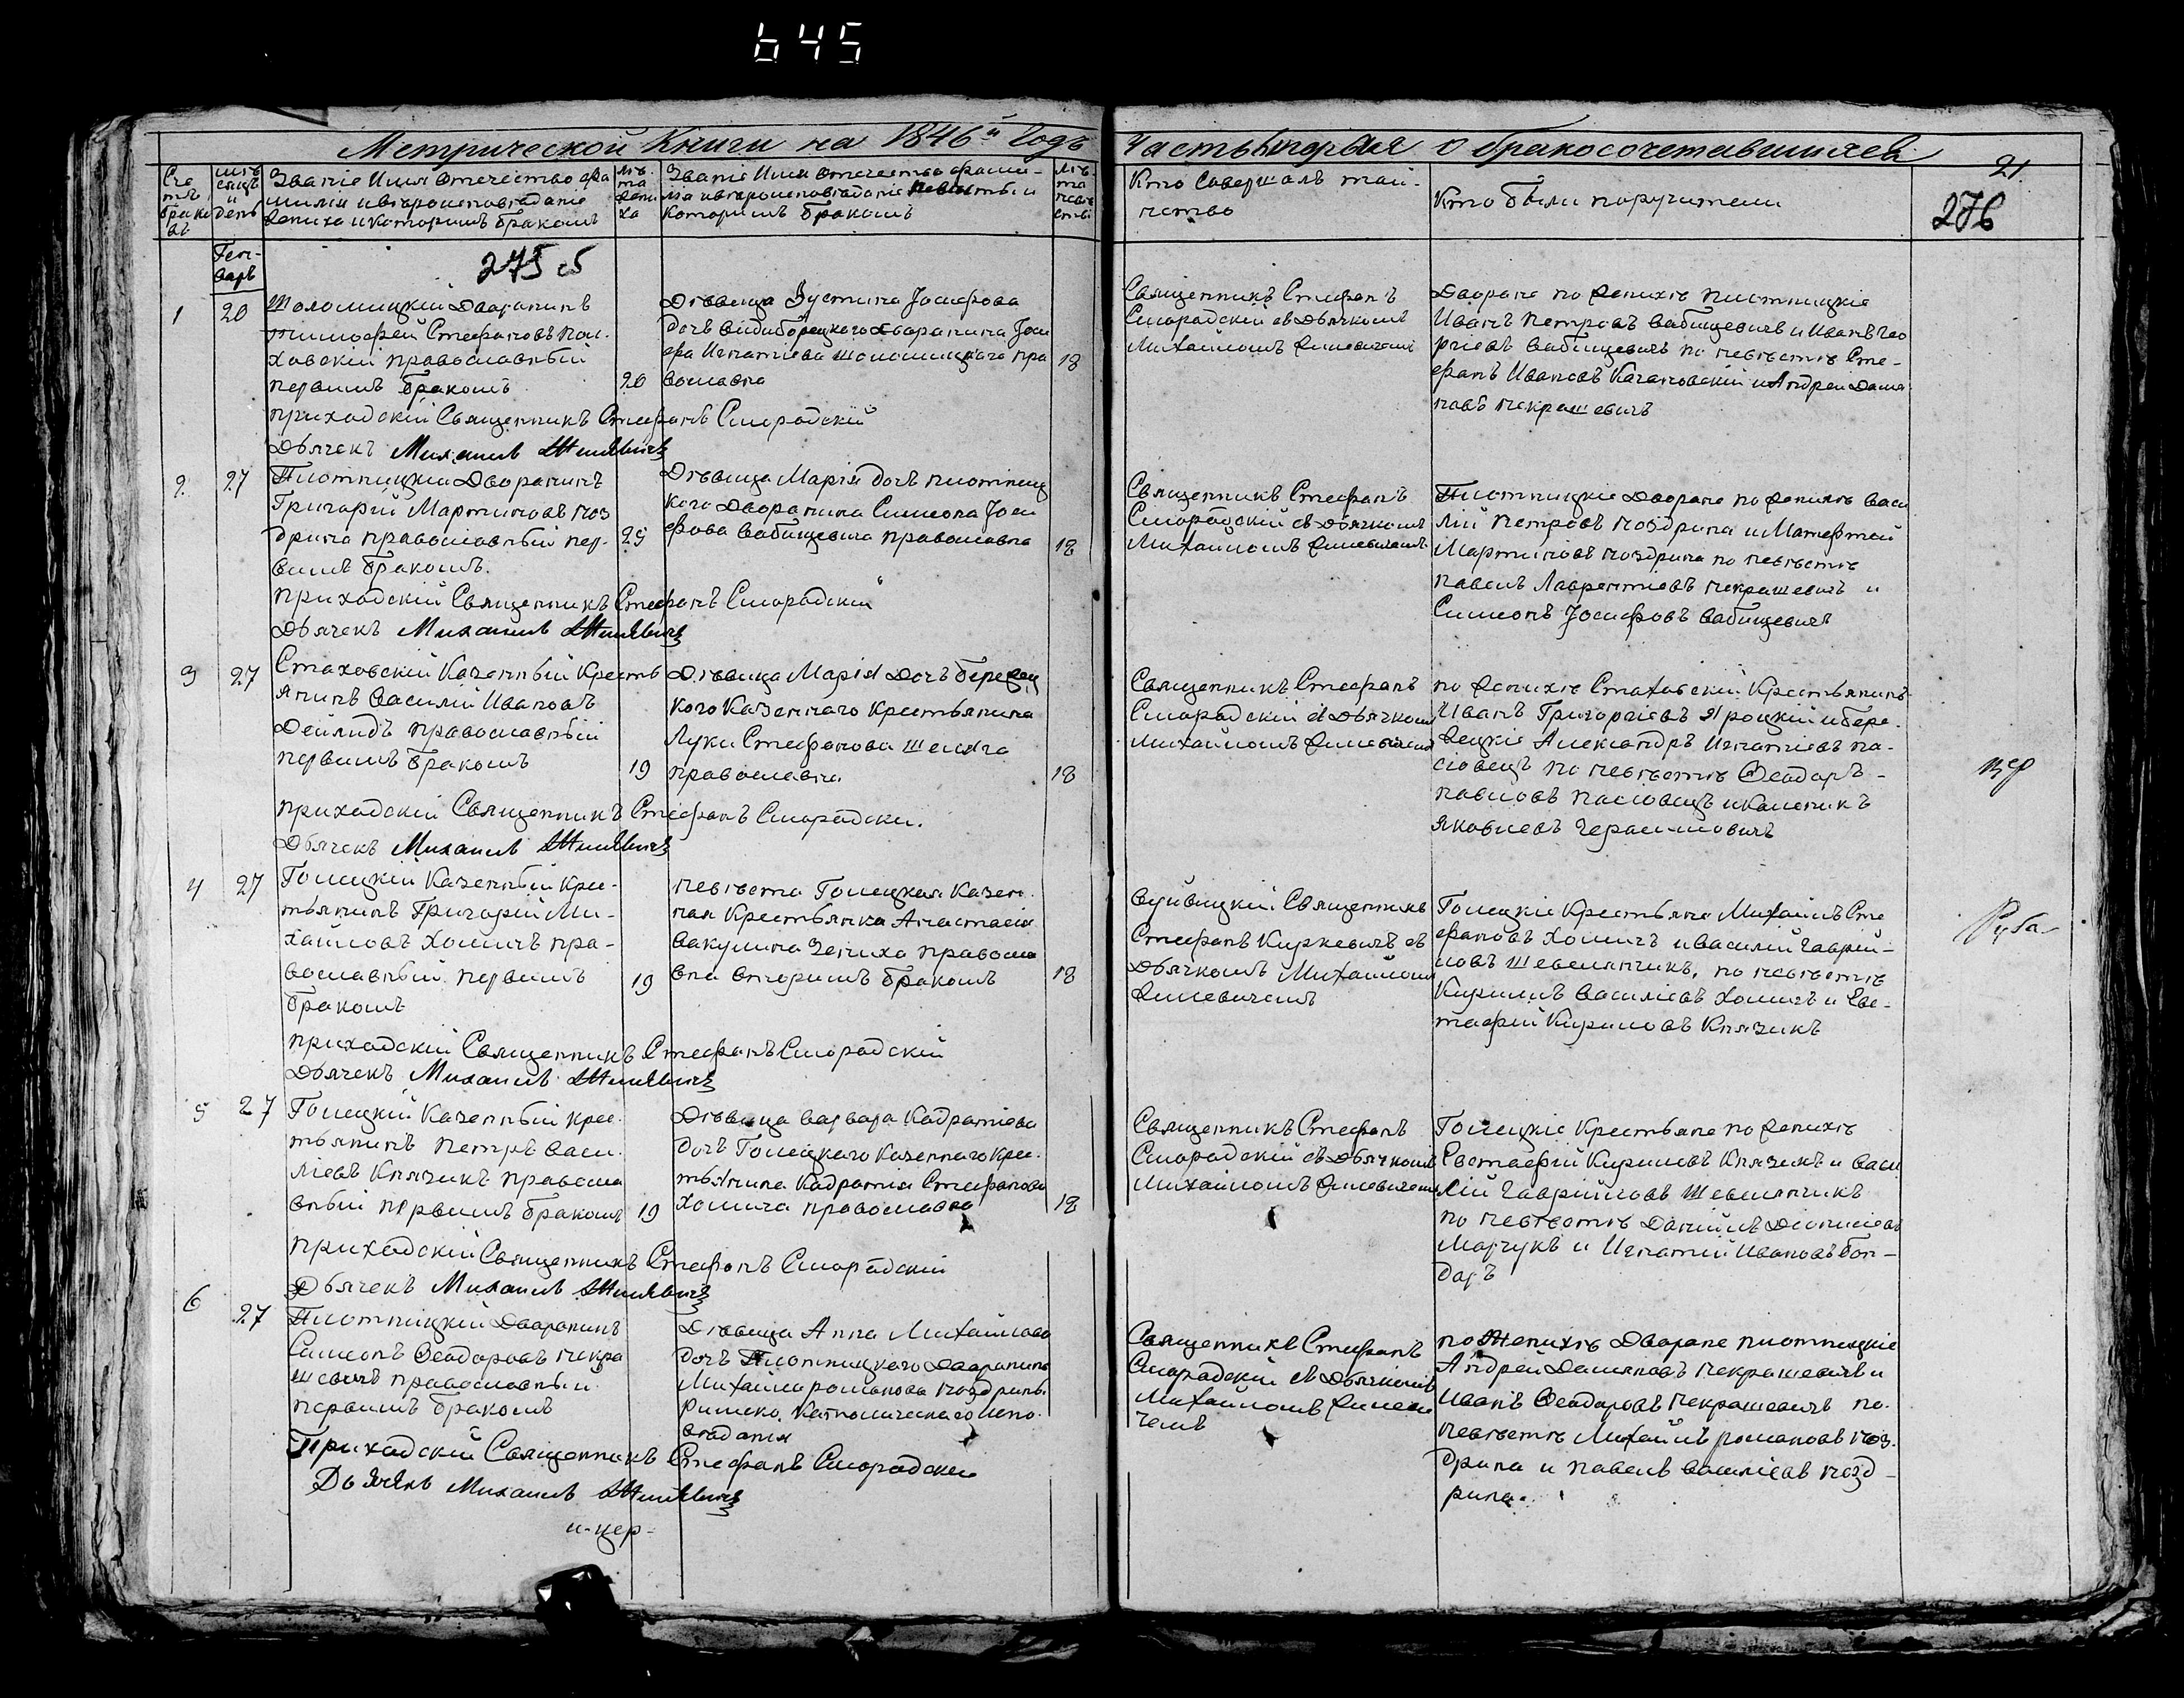 645
Метрической Книги на 1846й Годъ
Часть вторая о бракосочетавшихся
21
276
Сче
тъ
брако
въ
мѣ
сяцъ
и
день
Званіе Имя Отечество фа
милія и вѣроисповѣданіе
жениха и которымъ бракомъ
лѣ-
та
жени
ха
Званіе Имя Отечество фами-
лія и вѣроисповѣданіе невѣсты и
которымъ бракомъ
лѣ-
та
невѣ
сты
Кто Совершалъ таи-
нство
Кто были поручители
Ген-
варь
275 об
1
20
Шоломицкій Дворянинъ
тимофей Стефановъ Пол-
ховскій православный
первымъ бракомъ
20
Дѣвица Іустина Іосифова
дочъ видиборецкого дворанина Іоси
фа Игнатіева шоломицкаго пра
вославна
18
Священникъ Стефанъ
Смородскій съ Дьячкомъ
Михаиломъ Жилевичемъ
Дворане по женихѣ плотницкіе
Иванъ Петровъ вабищевичъ и Иванъ Гео
ргіевъ вабищевичъ по невѣстѣ Сте-
фанъ Ивановъ Качановскій и Андрей Дамя
новъ некрашевичъ
приходскій Священникъ Стефанъ Смородскій
Дьячекъ Михаилъ Жилевичъ
2
27
Плотницкій Дворанинъ
Григорій Мартиновъ ноз
дрина православный пер-
вымъ бракомъ.
25
Дѣвица Марія дочъ плотниц
кого Дворанина Симеона Іоси
фова вабищевича православна
18
Священникъ Стефанъ
Смородскій съ Дьячкомъ
Михаиломъ Жилевичемъ
Плотницкіе Дворане по женихѣ васи
лій Петровъ ноздрина и Матфей
Мартиновъ ноздрина по невѣстѣ
павелъ Лаврентіевъ некрашевичъ и
Симеонъ Іосифовъ вабищевичъ
приходскій Священникъ Стефанъ Смородскій
Дьячекъ Михаилъ Жилевичъ
3
27
Стаховскій Казенный Кресть
янинъ Василій Ивановъ
Дейлидъ православный
первымъ бракомъ
19
Дѣвица Марія Дочъ берец
кого Казеннаго Крестьянина
Луки Стефанова
православна
18
Священникъ Стефанъ
Смородскій съ Дьячкомъ
Михаиломъ Жилевичемъ
по женихѣ Стаховскій Крестьянинъ
Иванъ Григоріевъ Яроцкій и бере-
жецкіе Александръ Игнатіевъ па-
словецъ по невѣстѣ Ѳеодоръ -
павловъ пасловецъ и Каленикъ
Яковлевъ Герасимовичъ
приходскій Священникъ Стефанъ Смородски.
Дьячекъ Михаилъ Жилевичъ
4
27
Голецкій Казенный Крес-
тьянинъ Григорій Ми-
хайловъ Хомичъ пра-
вославный первымъ
бракомъ
19
невѣста Голецкая Казен-
ная Крестьянка Анастасія
вакулина Зениха правосла
вна вторымъ бракомъ
18
вуйвицкій Священникъ
Стефанъ Киркевичъ съ
Дьячкомъ Михаиломъ
Жилевичемъ
Голецкіе Крестьяне Михаилъ Сте
фановъ Хомичъ и василій Гаврій-
ловъ Шевелянчикъ, по невѣстѣ
Кирилъ Василіевъ Хомичъ и Еве-
тафій Кириловъ Князикъ
приходскій Священникъ Стефанъ Смородскій
Дьячекъ Михаилъ Жилевичъ
5
27
Голецкій Казенный Крес-
тьянинъ Петръ Васи-
ліевъ Князикъ правосла
вный первымъ бракомъ
19
Дѣвица варвара Кадратіева
дочъ Голецкаго Казеннаго Крес-
тьянина Кадратія Стефанова
Хомича православна
18
Священникъ Стефанъ
Смородскій съ Дьячкомъ
Михаиломъ Жилевичемъ
Голецкіе Крестьяне по женихѣ
Евстафій Кириловъ Князикъ и васи
лій Гаврійловъ Шевелянчикъ
по невѣстѣ Даніилъ Діонисіевъ
Марчукъ и Игнатій Ивановъ бон-
даръ
приходскій Священникъ Стефанъ Смородскій
Дьячекъ Михаилъ Жилевичъ
6
27
Плотницкій Дворанинъ
Симеонъ Ѳеодоровъ некра
шевичъ православный
первымъ бракомъ
Дѣвица Анна Михайлова
дочъ Плотницкого Дворанина
Михаила романова ноздрины
Римско Католическаго испо-
вѣданія
Священникъ Стефанъ
Смородскій съ Дьячкомъ
Михаиломъ Жилеви
чемъ
по Женихѣ Дворане плотницкіе
Андрей Дамяновъ некрашевичъ и
Иванъ Ѳеодоровъ Некрашевичъ по-
невѣстѣ Михаилъ романовъ ноз-
дрина и павелъ василіевъ нозд-
рина.
Приходскій Священникъ Стефанъ Смородскій
Дьячекъ Михаилъ Жилевичъ